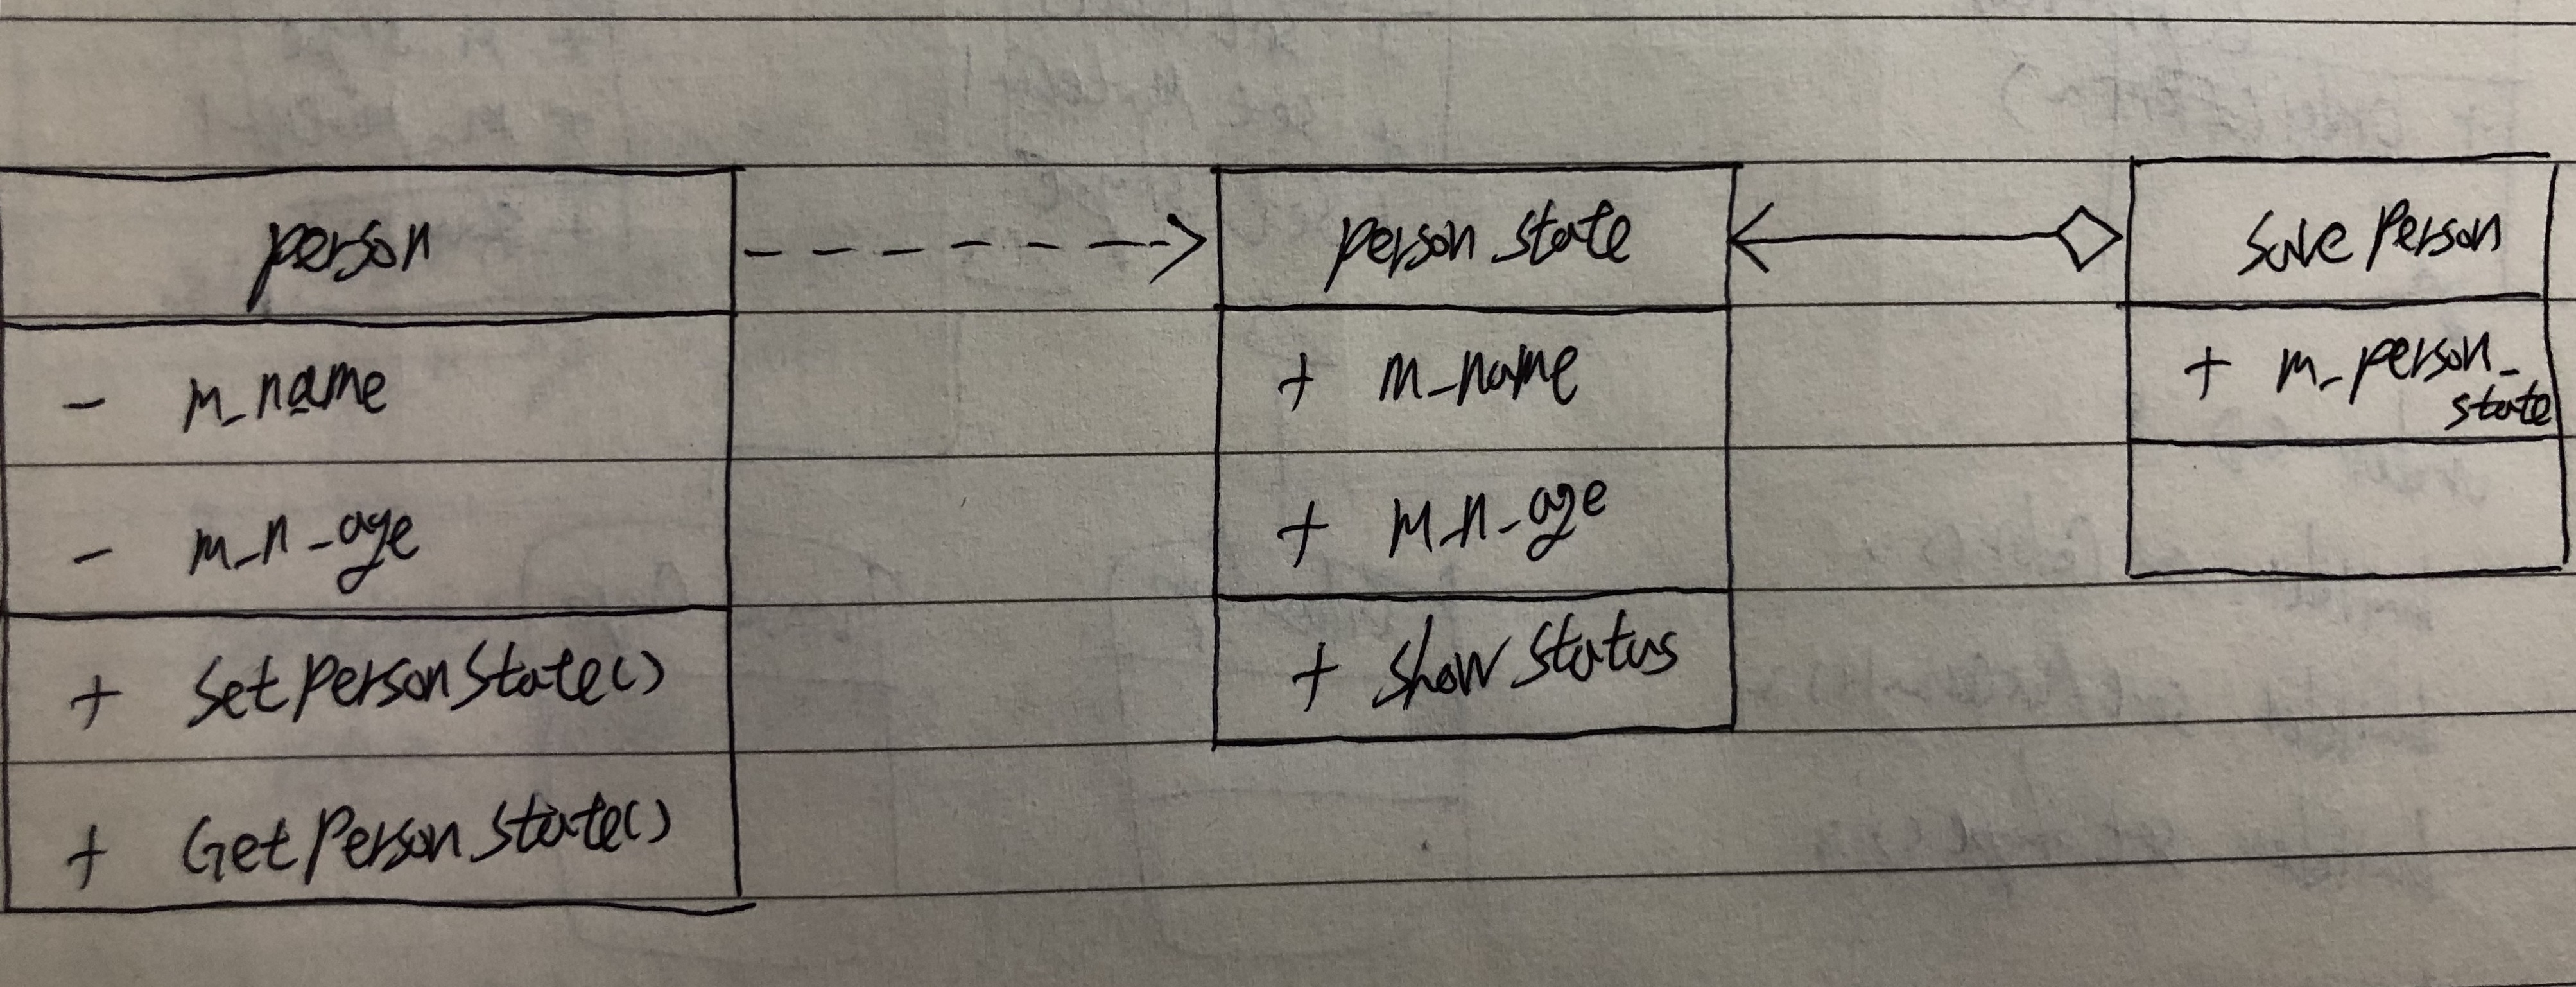 person
- m_name
- m_n_age
+ SetPersonState()
+ GetPersonState()
person state
+ m_name
+ m_n_age
+ show status
Save Person
+ m_person_
state